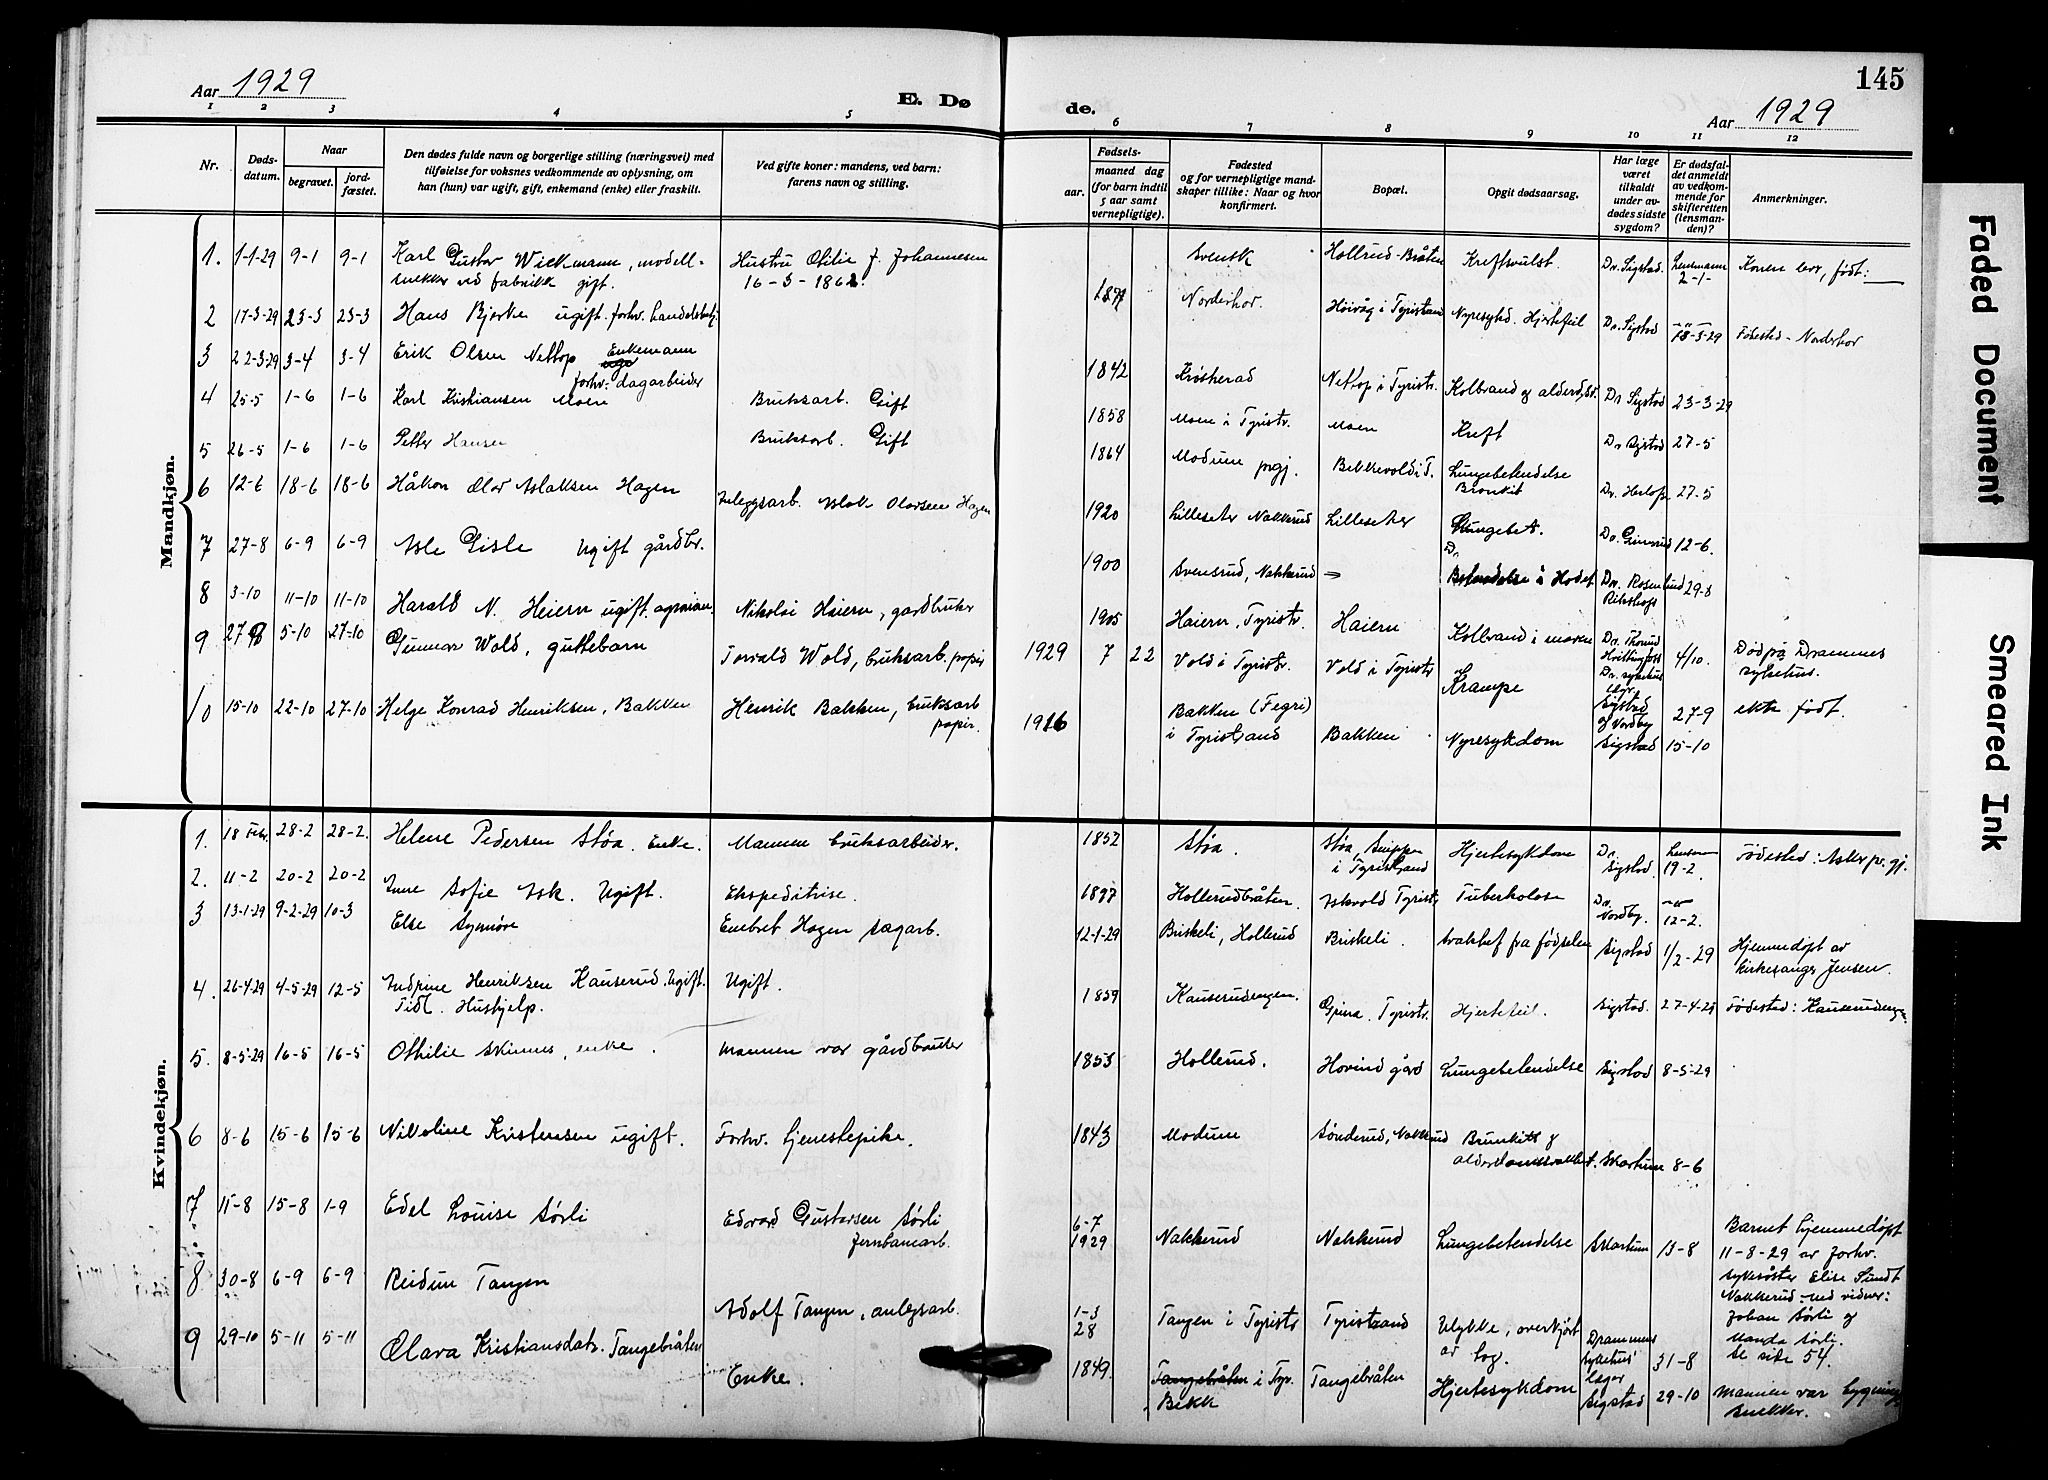 Aar 1929
E. Dø
de.
Aar 1929
145
1 2 3 4 5 6 7 8 9 10 11 12
Nr.
Døds-
datum.
Naar
begravet.
jord-
fæstet.
Den dødes fulde navn og borgerlige stilling (næringsvei) med
tilføielse for voksnes vedkommende av oplysning, om
han (hun) var ugift, gift, enkemand (enke) eller fraskilt.
Ved gifte koner: mandens, ved barn:
farens navn og stilling.
Fødsels-
aar.
maaned dag
(for barn indtil
5 aar samt
vernepligtige).
Fødested
og for vernepligtige mand-
skaper tillike: Naar og hvor
konfirmert.
Bopæl.
Opgit dødsaarsag.
Har læge
været
tilkaldt
under av-
dødes sidste
sygdom?
Er dødsfal-
det anmeldt
av vedkom-
mende for
skifteretten
(lensman-
den)?
Anmerkninger.
Mandkjøn.
1. 1-1-29 9-1 9-1 Karl Gustav Wickmann, modell-
snekker ved fabrikk gift.
Hustru Otilie J. Johannesen
16-3-1862.
Svensk Hollrud-Bråten Kreftsvulst. Dr. Sigstad. Lensmann
2-1- Konen lev, født:
2 17-3-29 23-3 23-3 Hans Bjerke ugift. forhv. handelsbetj.
1871 Norderhov. Høivåg i Tyristrand Nyresykd. Hjertefeil Dr. Sigstad 18-3-29 Fødested - Norderhov
3 22-3-29 3-4 3-4 Erik Olsen Nettop Enkemann
forhv. dagarbeider
1842 Krøsherad Nettop i Tyristr. Kolbrand og alderd. Dr Sigstad 23-3-29
4 25-5 1-6 1-6 Karl Kristiansen Moen Bruksarb. Gift
1858 Moen i Tyristr. Moen Kreft Dr Sigstad 27-5
5 26-5 1-6 1-6 Petter Hansen Bruksarb. Gift
1864 Modum prgj. Bekkevold i T. Lungebetendelse
Bronkit Dr. 27-5
6 12-6 18-6 18-6 Håkon Olav Aslaksen Hagen Anleggsarb. Aslak Olavsen Hagen
1920 Lilleseter Nakkerud Lilleseter Lungebet. Dr. 12-6.
7 27-8 6-9 6-9 Asle Gisle Ugift gårdbr.
1900 Svensrud, Nakkerud Betendelse i Hodet Dr. Rosenlund
Rikshosp 29-8
8 3-10 11-10 11-10 Harald N. Heiern ugift. Nikolai Haiern, gardbruker
1905 Haiern, Tyristr. Haiern Kolbrand i maven Dr. 4/10. Død på Drammens
sykehus.
9 27 9 5-10 27-10 Gunnar Wold, guttebarn Torvald Wold, bruksarb. papir
1929 7 22 Vold i Tyristr. Vold i Tyristr Krampe Sigstad
og Nordby 27-9 ikke født.
10 15-10 22-10 27-10 Helge Konrad Henriksen, Bakken Henrik Bakken, bruksarb
papir.
1916 Bakken (Fegri)
i Tyristrand Bakken Nyresykdom Sigstad 15-10
Kvindekjøn.
1. 18 Febr. 28-2 28-2. Helene Pedersen Støa. Enke. Mannen bruksarbeider.
1852 Støa. Støa, Snippen
i Tyristrand Hjertesykdom Dr.
Sigstad. 19-2. Fødested: Asker pr.gj.
2. 11-2 20-2 20-2 Anne Sofie Ask. Ugift. Ekspeditrise.
1897 Hollerudbråten. Askvold Tyristr. Tuberkolose Dr.
Nordby. 12-2.
3 13-1-29 9-2-29 10-3 Else Synnøve Enebret Hagen sagarb.
12-1-29 Briskeli, Hollerud Briskeli. svakhet fra fødselen Sigstad 1/2-29 Hjemmedøpt av
kirkesanger Jensen.
4. 26-4-29 4-5-29 12-5 Andrine Henriksen Kauserud. Ugift.
Tidl. Hushjelp. Ugift.
1859 Kauserudengen. Grina. Tyristr. Hjertefeil. Sigstad. 27-4-29 Fødested: Kauserudengen.
5. 8-5-29 16-5 16-5 Othilie Skinnes, enke. Mannen var gårdbruker
1853 Hollerud. Hovind gård Lungebetendelse Sigstad 8-5-29
6 8-6 15-6 15-6 Nikoline Kristensen ugift. Forhv. tjenestepike.
1843 Modum Sønderud, Nakkerud Brunkitt og
alderdomssvakhet. Skartum 8-6
7 11-8 15-8 1-9 Edel Louise Sørli Edvard Gustavsen Sørli
Jernbanearb.
6-7
1929 Nakkerud Nakkerud Lungebetendelse Skartum 13-8 Barnet hjemmedøpt
11-8-29 av forhv.
sykesøster Elise Sundt
Nakkerud med vidner:
Johan Sørli og
Manda Sørli.
Se side 54.
8 30-8 6-9 6-9 Reidun Tangen Adolf Tangen, anlegsarb.
1-3
28 Tangen i Tyristr Tyristrand Ulykke, overkjørt
av tog. Drammens
sykehus'
læger 31-8
9 29-10 5-11 5-11 Olava Kristiansdatr. Tangebråten Enke.
1849. Tangebråten i Tyr.
Bekk Tangebråten Hjertesykdom Sigstad 29-10 Mannen var bygnings
snekker.
Faded Document
Smeared Ink